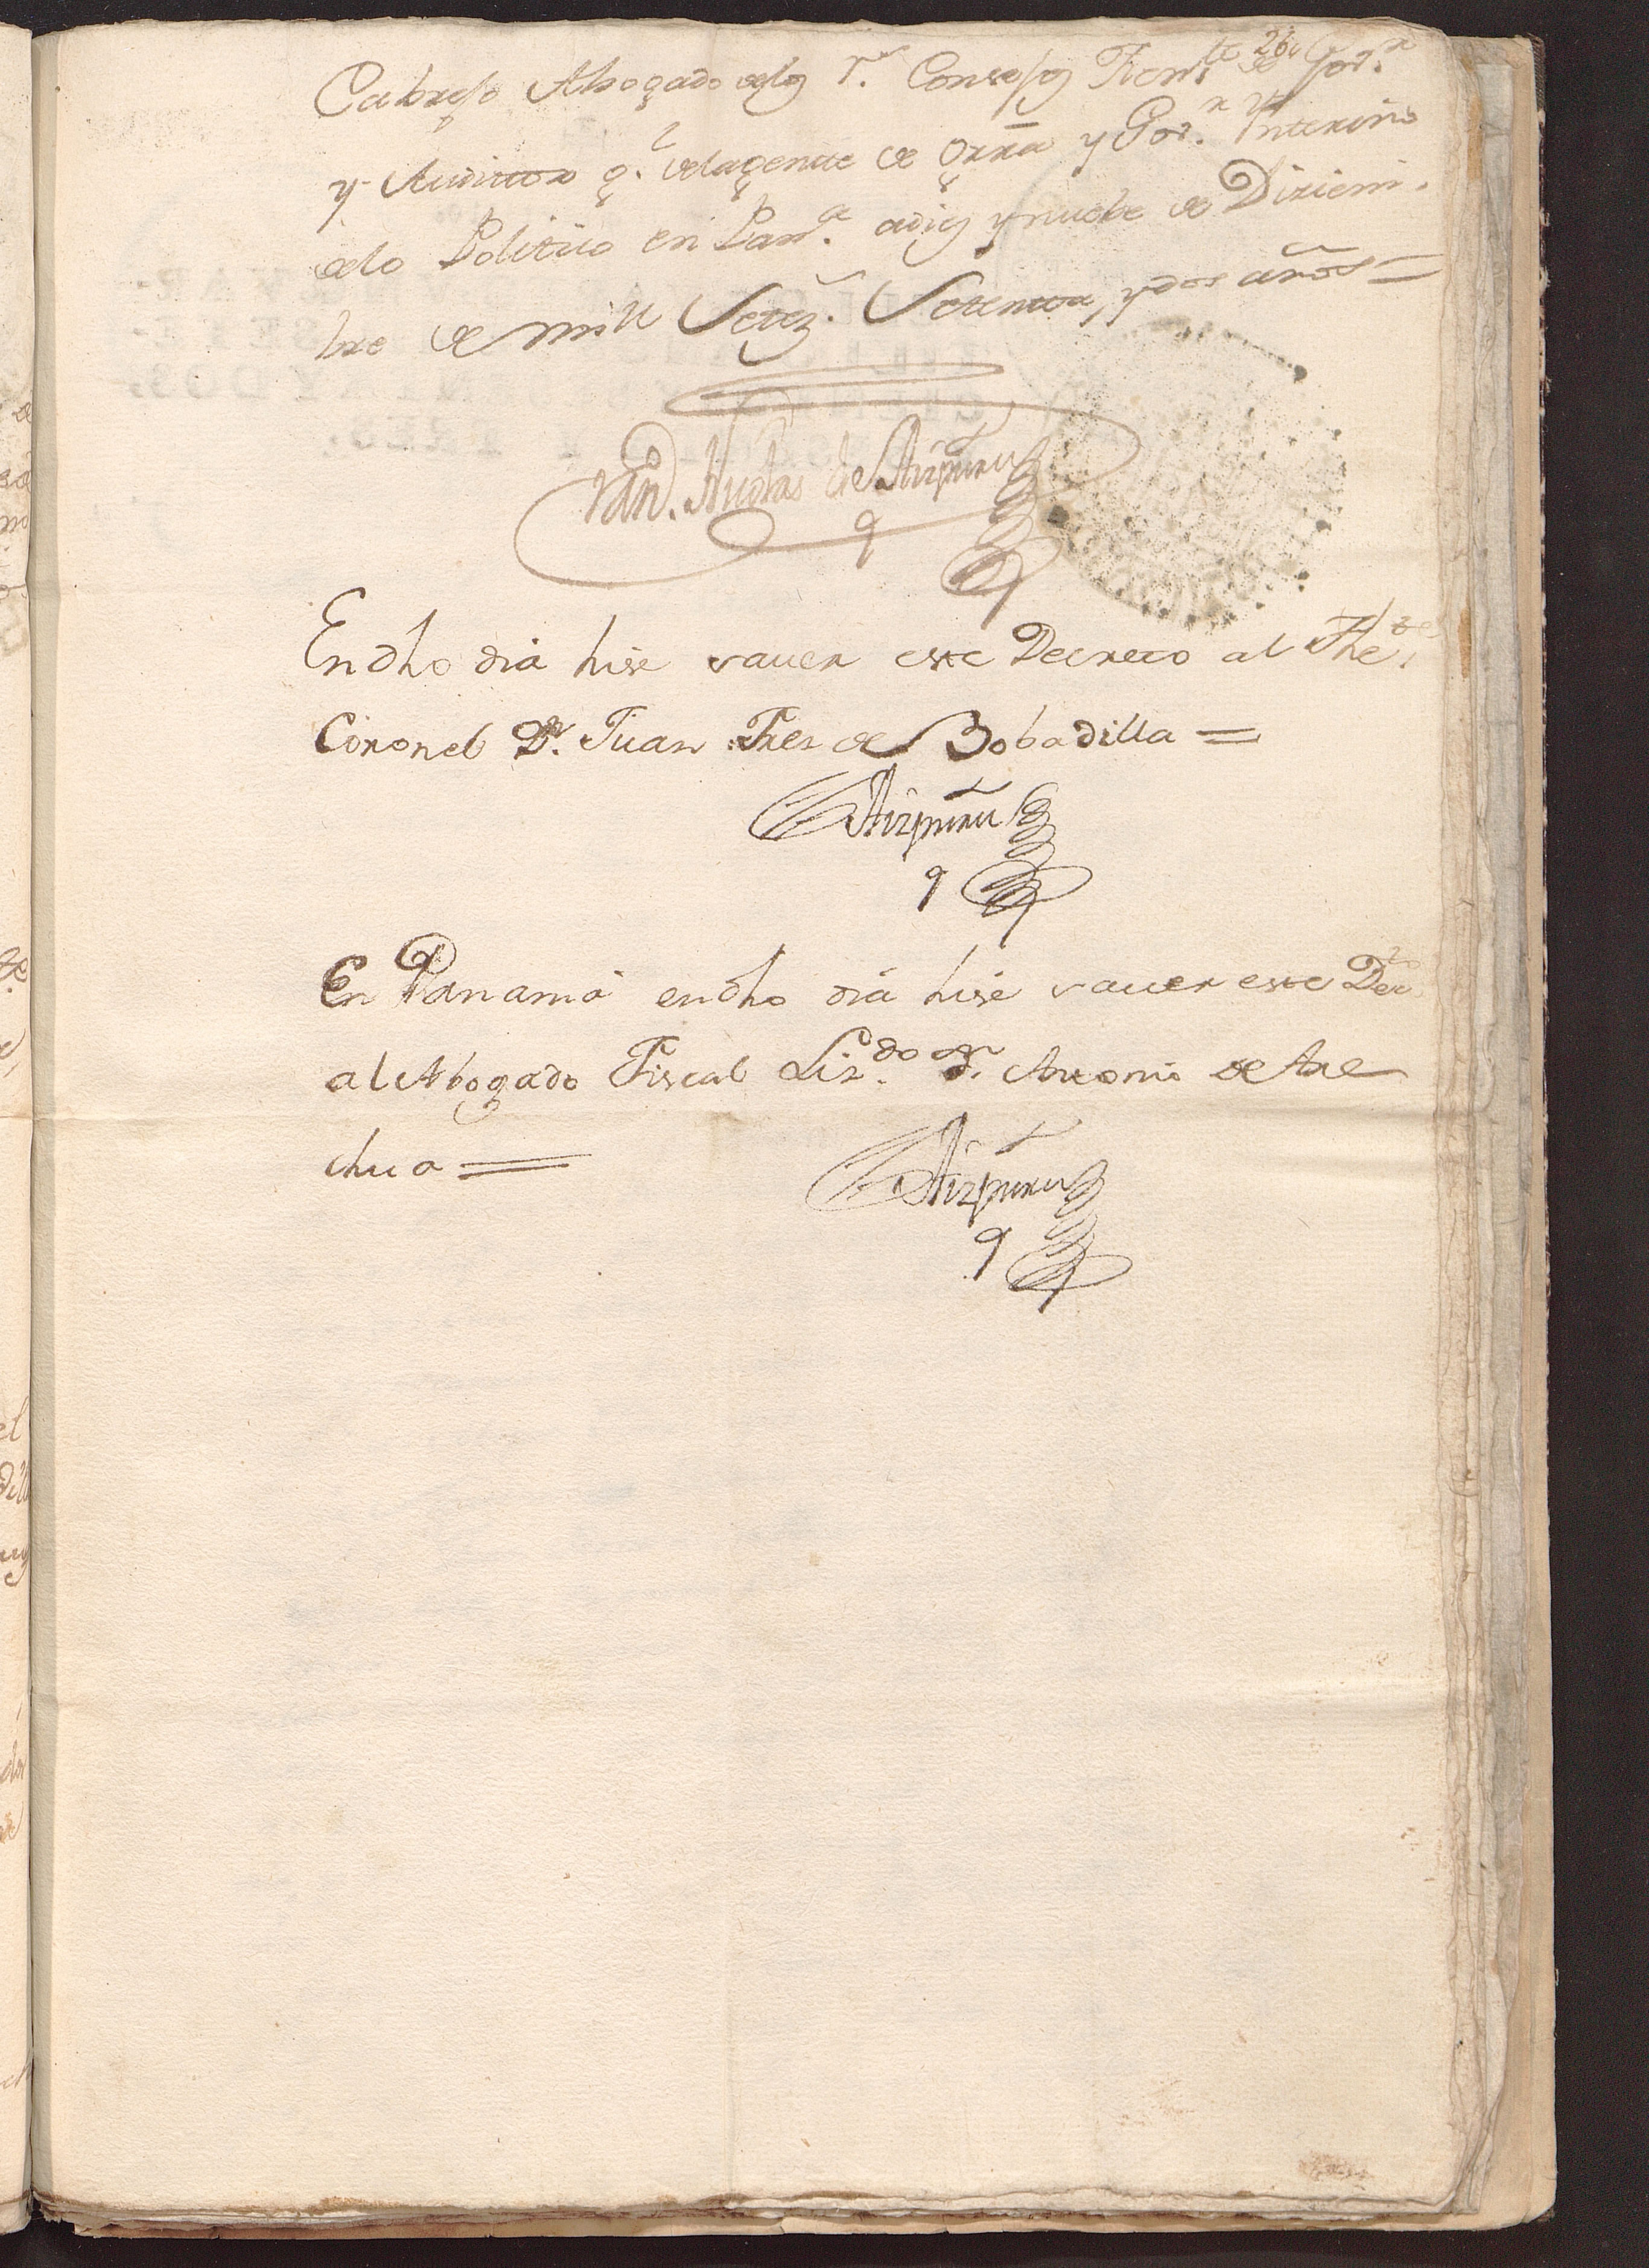 26
Cabrejo Abogado delos Rs. Consejos Tient.te de Gov.r
y Auditor g.l delagente de Grra y Gov.r Interino
delo Politico en Pan.a adies ynuebe de Diziem.
bre de mill Setez.s Setenta, ydos años =
Juan Andres de Aizpuru
En dho dia hise saver este Decreto al The.
Coronel Dn. Juan Frez de Bobadilla =
Aizpuru
En Panamá endho dia hise saver este Dec.to
al Abogado Fiscal Liz.do Dn. Antonio de Are
chua =
Aizpuru